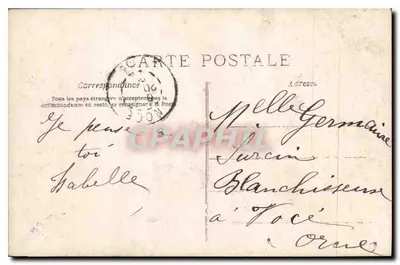 CARTE POSTALE
Correspondance
Adresse
Tous les pays étrangers n'acceptent pas la
correspondance au recto, se renseigner à la Poste
Je pense à
toi
Isabelle
Melle Germaine
Surcin
Blanchisseuse
à Nocé
Orne
NOCÉ
CPAPHIL